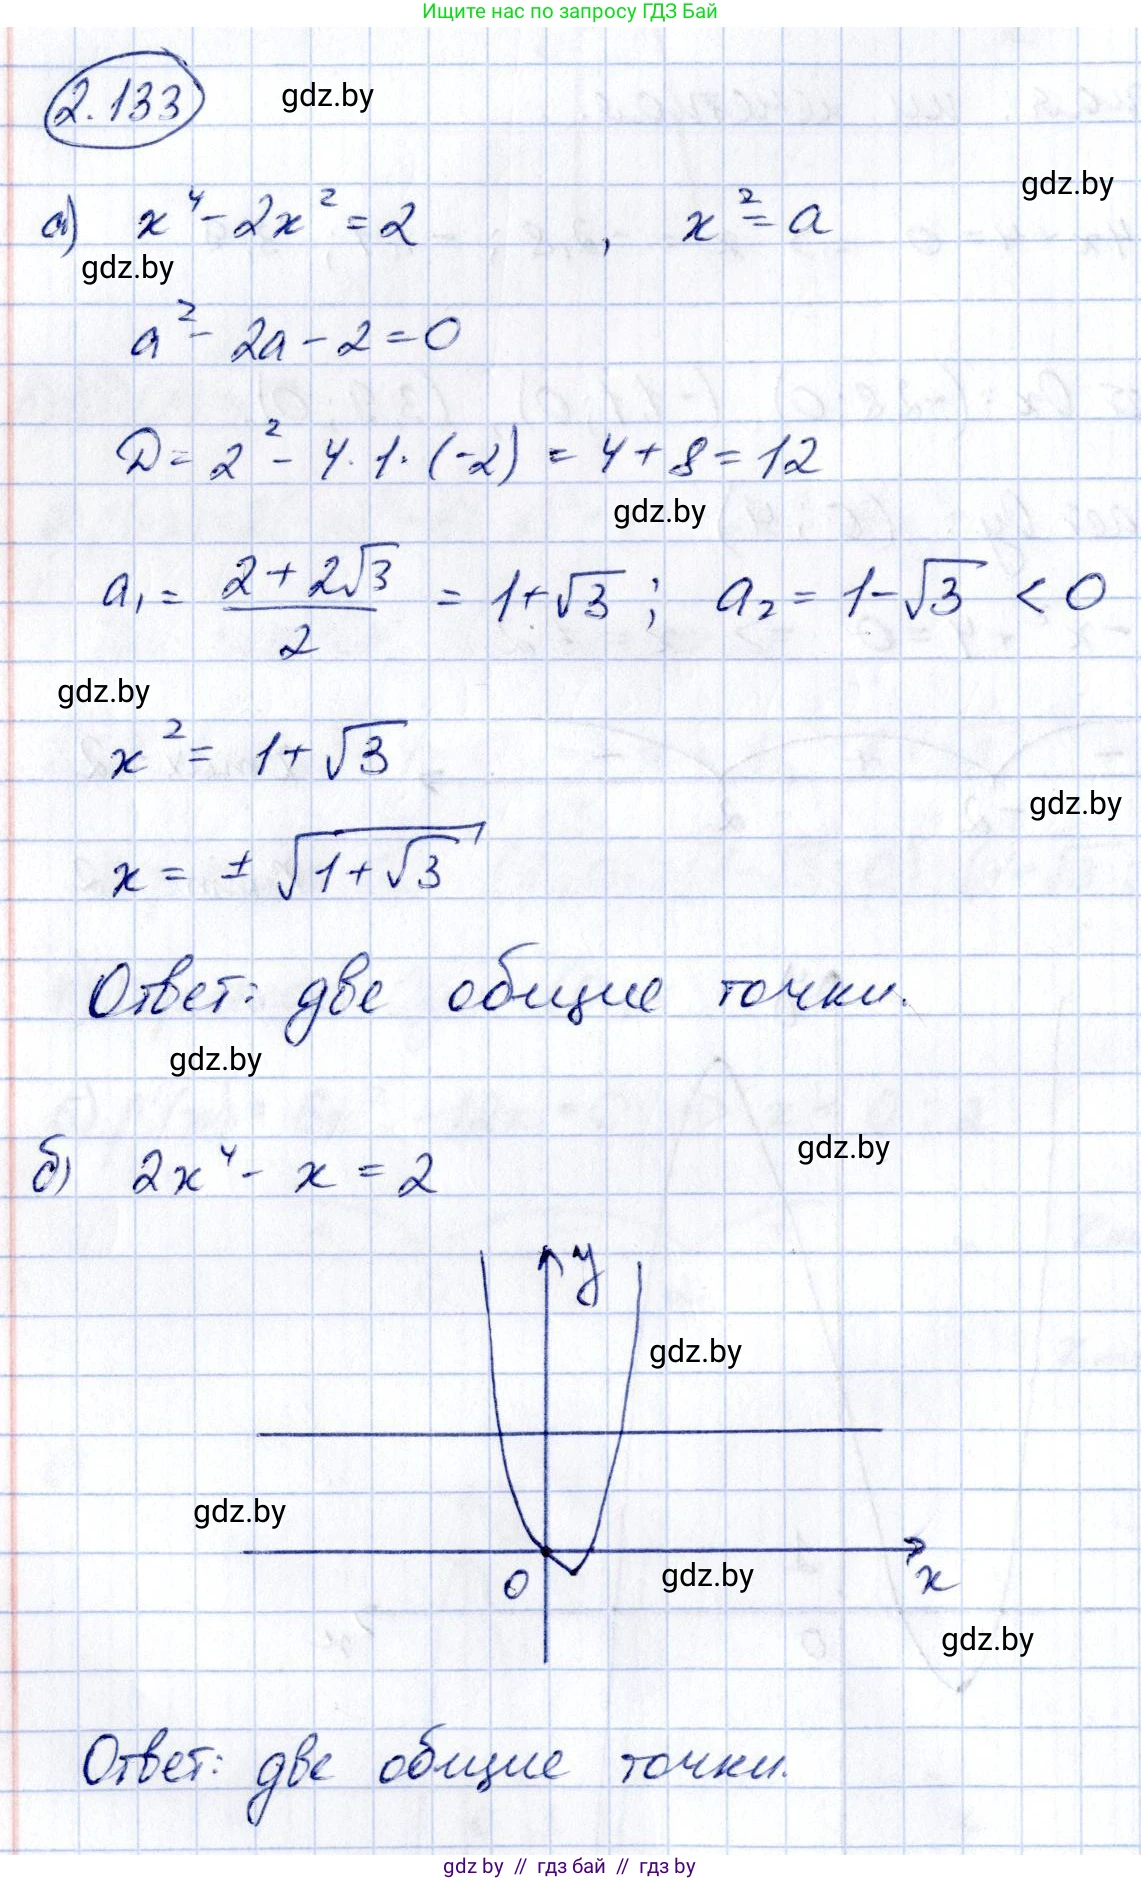 Ищите нас по запросу ГДЗ Бай
2.133
gdz.by
gdz.by
а) x⁴ - 2x² = 2 , x² = a
gdz.by
a² - 2a - 2 = 0
D = 2² - 4 · 1 · (-2) = 4 + 8 = 12
gdz.by
a₁ = (2 + 2√3)/2 = 1 + √3 ; a₂ = 1 - √3 < 0
gdz.by
x² = 1 + √3
gdz.by
x = ± √(1 + √3)
Ответ: две общие точки.
gdz.by
gdz.by
б) 2x⁴ - x = 2
y
gdz.by
gdz.by
0
gdz.by
x
gdz.by
Ответ: две общие точки.
gdz by // гдз бай // гдз by